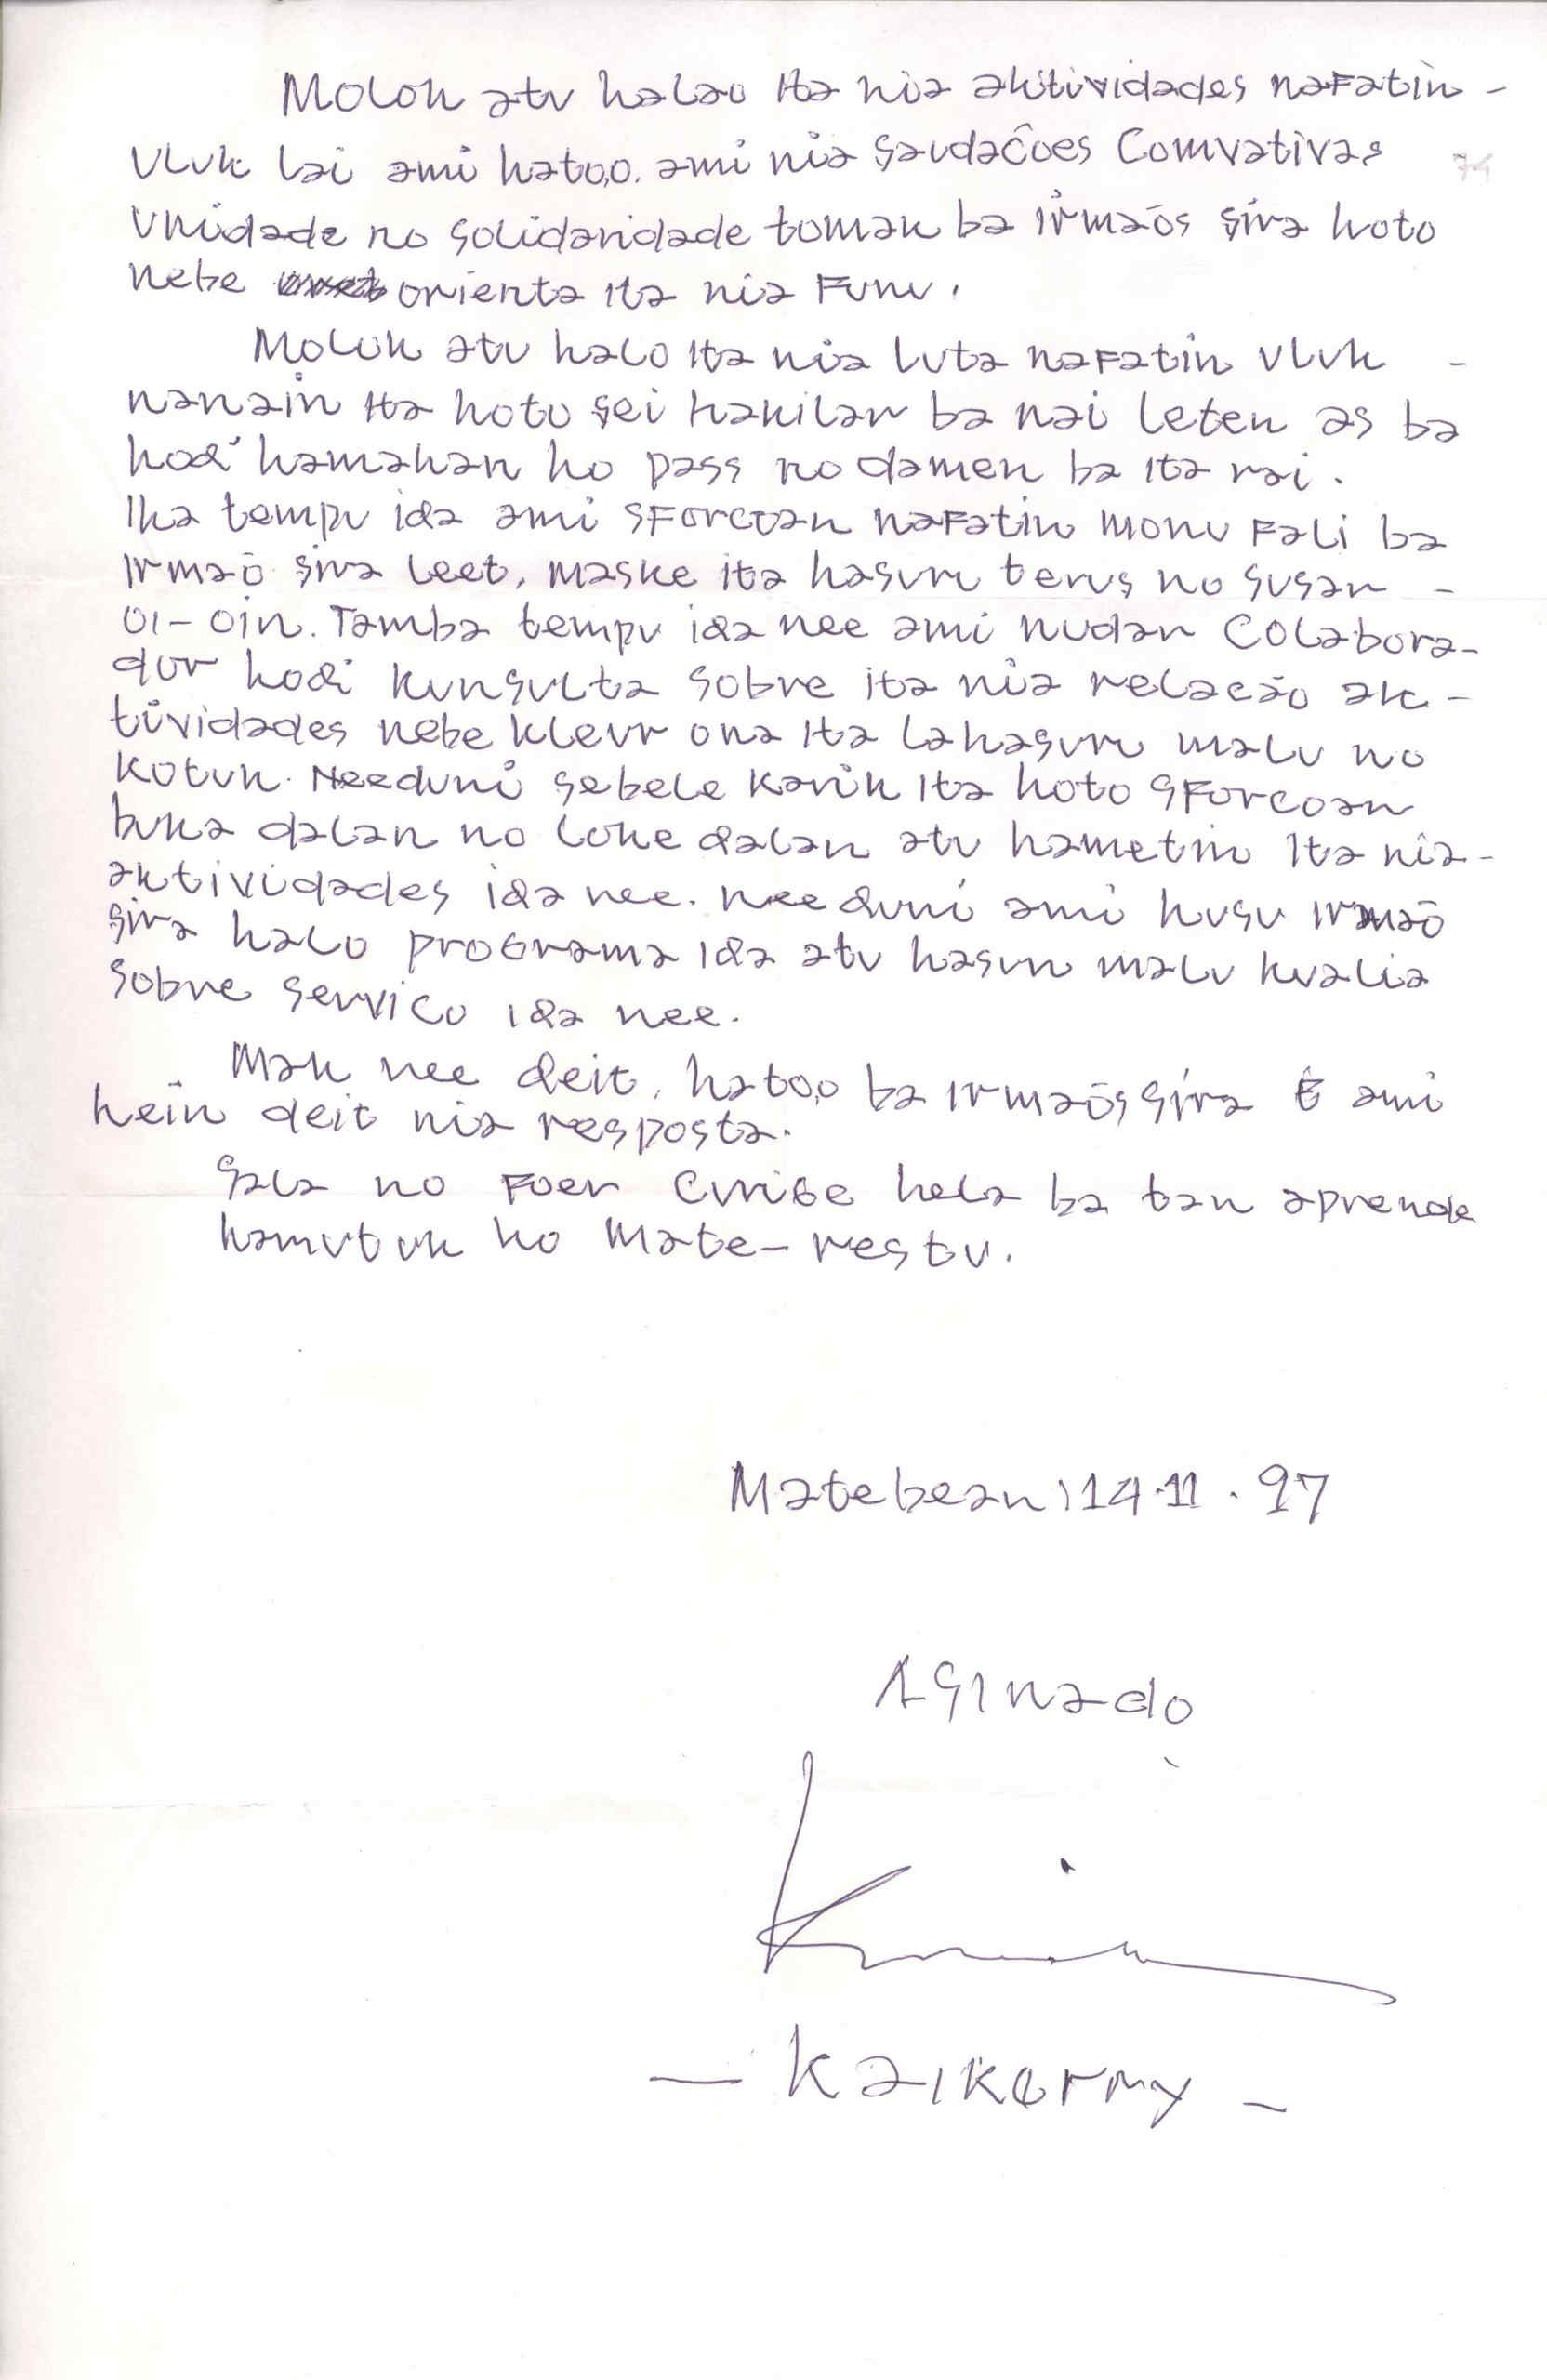 Molok atu halao Ita nia aktividades nafatin -
uluk lai ami hatoo. ami nia saudacôes Comvativas
Unidade no solidaridade tomak ba irmaõs sira hoto
nebe orienta ita nia Funu.
Moluk atu halo Ita nia luta nafatin uluk -
nanain Ita hoto sei hakilar ba nai leten as ba
hodi hamahan ho pass no damen ba ita rai.
Iha tempu ida ami sforcoan nafatin monu fali ba
Irmaõ sira leet, maske ita hasuru terus no susar -
oi-oin. Tamba tempu ida nee ami nudar Colabora-
dor hodi kunsulta sobre ita nia relacão ak-
tividades nebe kleur ona Ita lahasuru malu no
kotuk. Needuni sebele karik Ita hoto sforcoan
buka dalan no loke dalan atu hametin Ita nia-
aktividades ida nee. needuni ami husu irmaõ
sira halo programa ida atu hasuru malu kualia
sobre servico ida nee.
Mak nee deit, hatoo ba irmaõs sira E ami
hein deit nia resposta.
Sala no Foer Curige hela ba tan aprende
hamutuk ho Mate-restu.
Matebean, 14.11.97
Asinado
- Kaikermy -
74